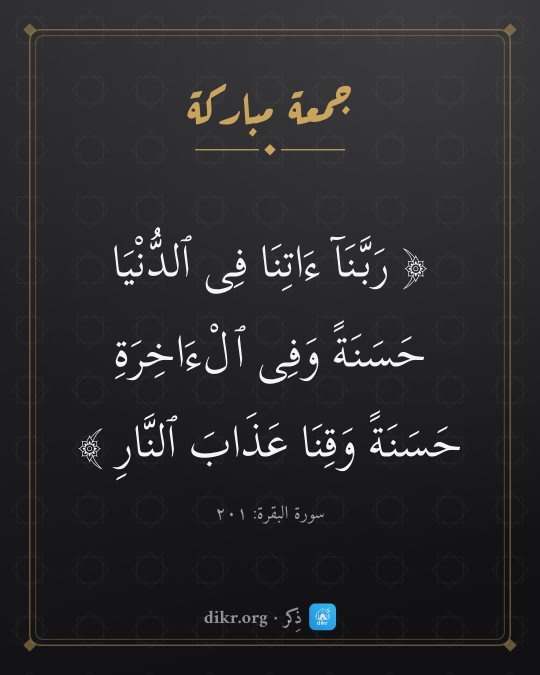 جمعة مباركة
﴿ رَبَّنَآ ءَاتِنَا فِى ٱلدُّنْيَا
حَسَنَةً وَفِى ٱلْءَاخِرَةِ
حَسَنَةً وَقِنَا عَذَابَ ٱلنَّارِ ﴾
سورة البقرة: ٢٠١
ذِكر · dikr.org
dikr